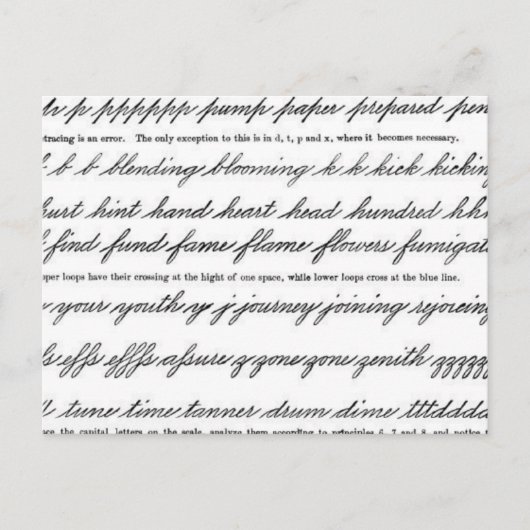 p pppppp pump paper prepared pen
tracing is an error. The only exception to this is in d, t, p and x, where it becomes necessary.
b b blending blooming k k kick kicking
hurt hint hand heart head hundred hhh
find fund fame flame flowers fumigat
per loops have their crossing at the hight of one space, while lower loops cross at the blue line.
your youth y j journey joining rejoicing
effs efffs assure z zone zone zenith zzzzz
tune time tanner drum dime tttdddd
ace the capital letters on the scale, analyze them according to principles 6, 7 and 8, and notice